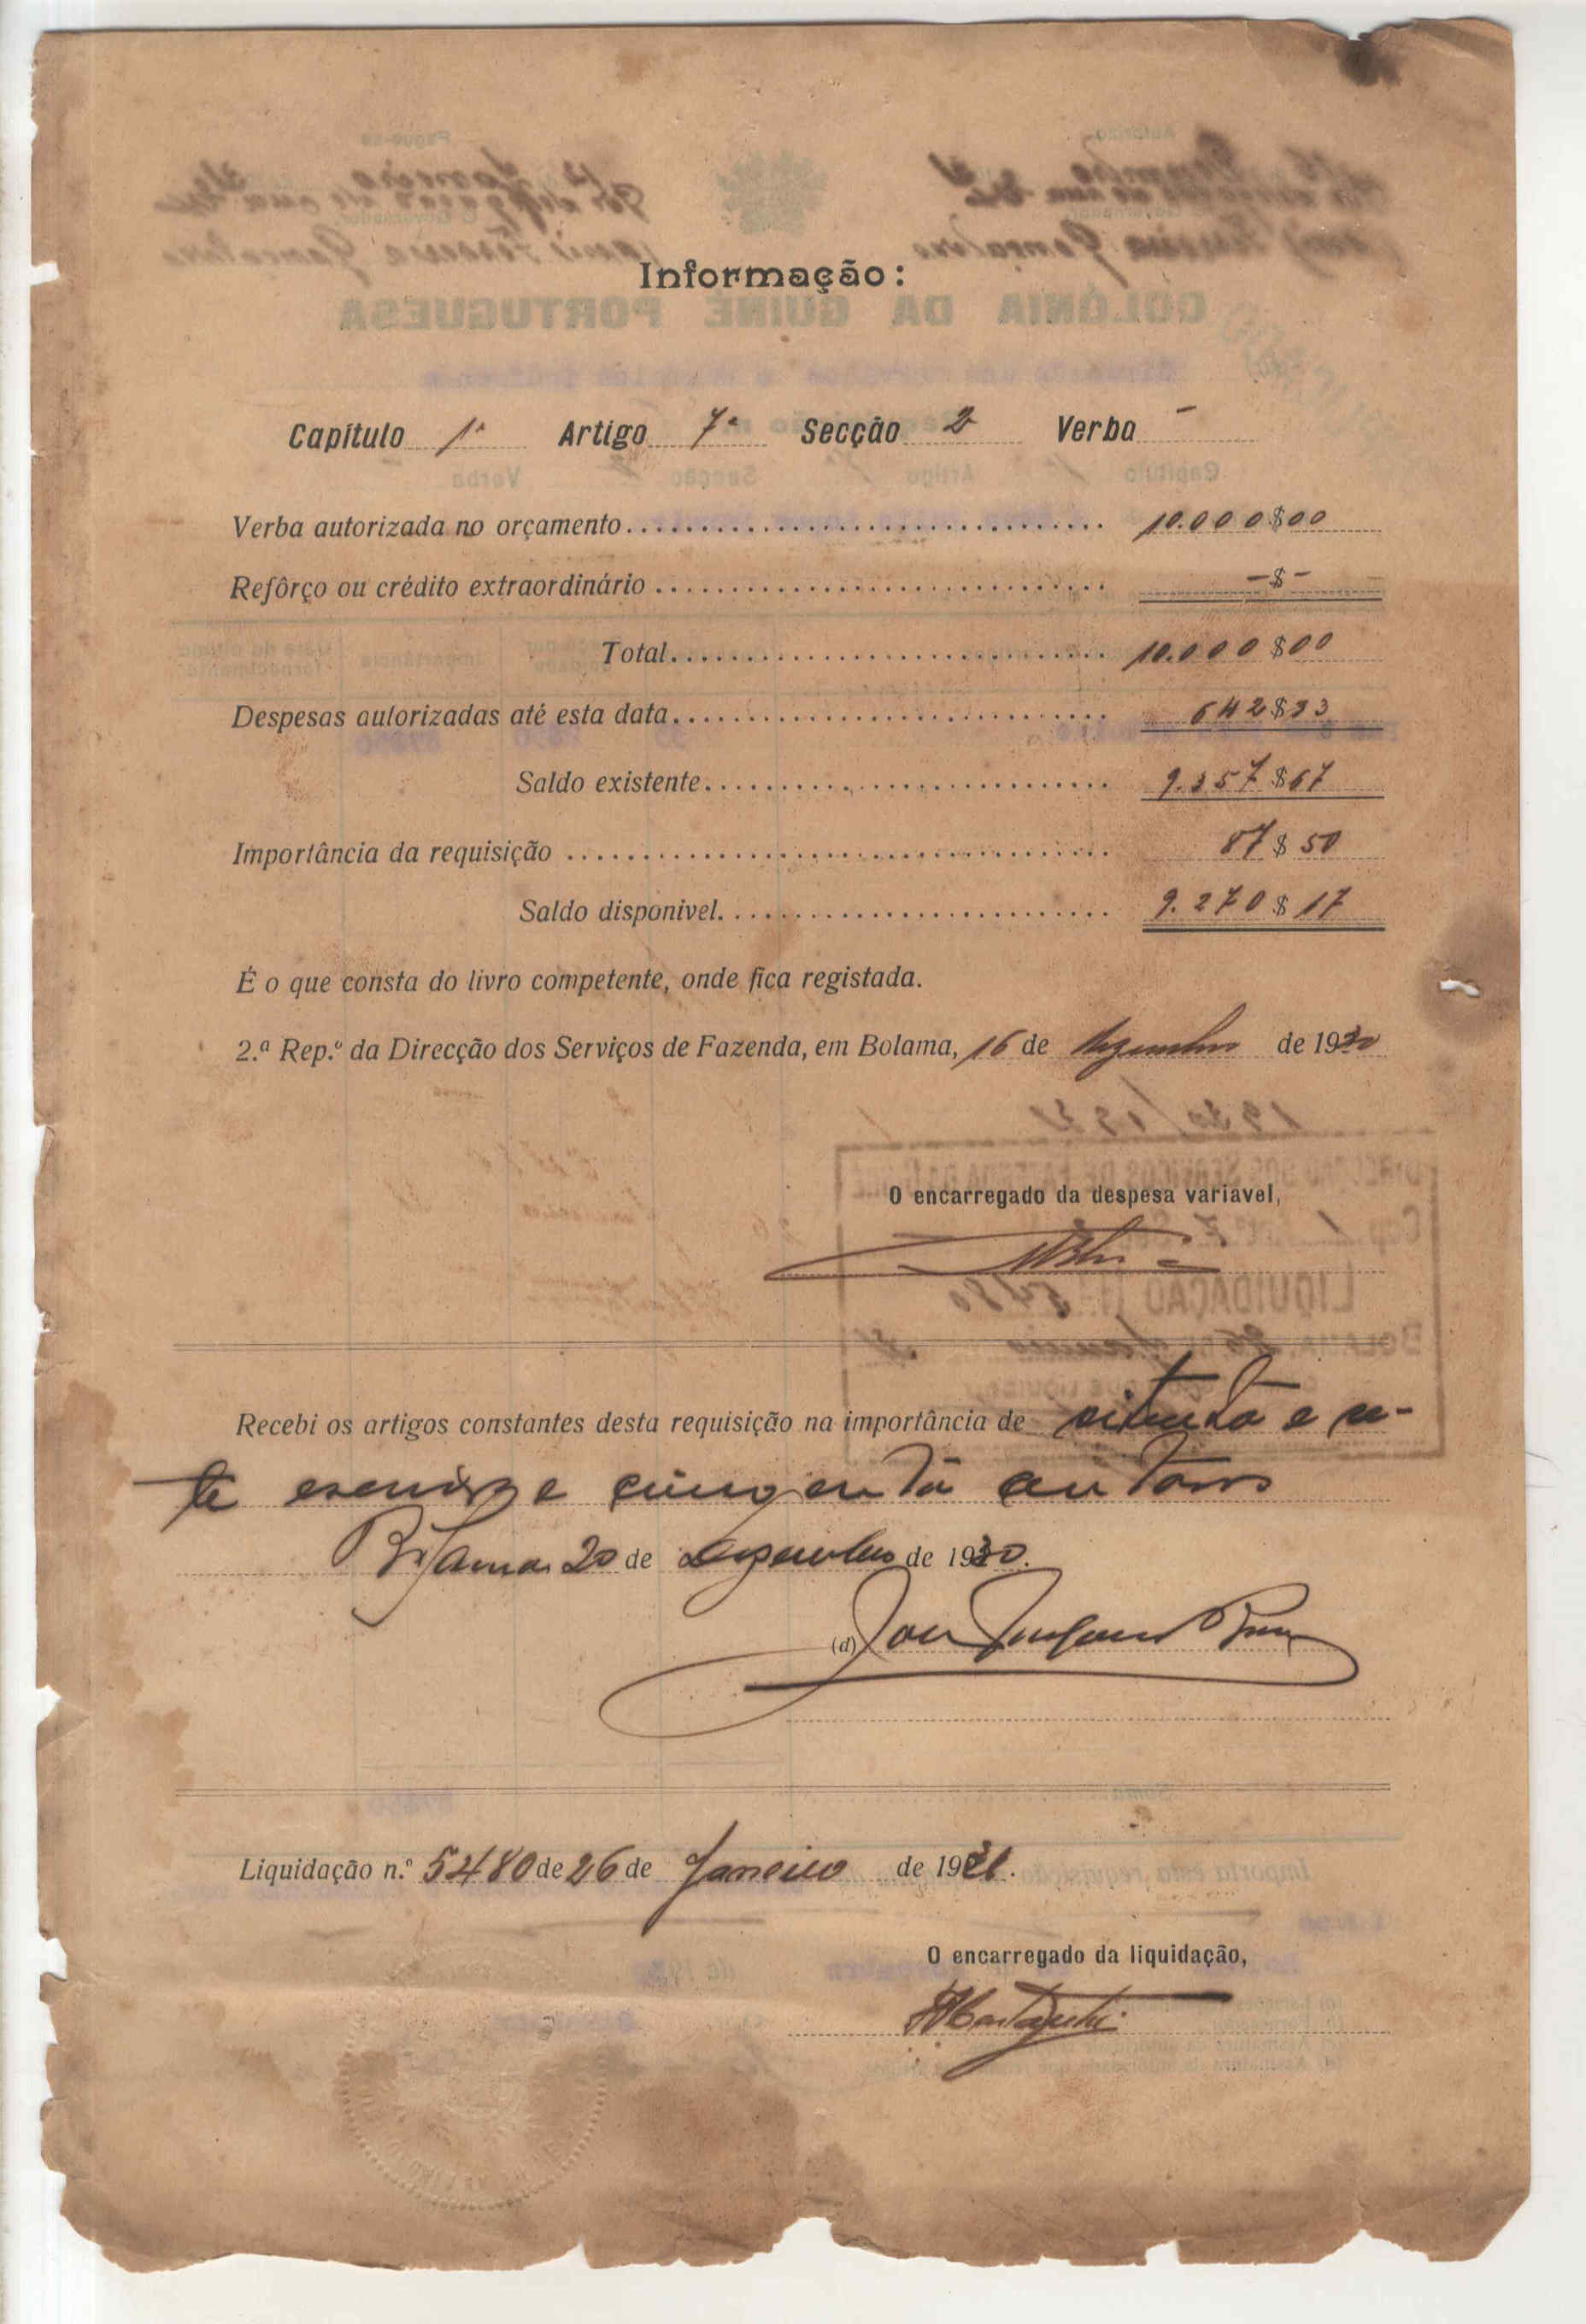 Informação:
Capítulo 1º Artigo 7º Secção 2 Verba -
Verba autorizada no orçamento 10.000$00
Refôrço ou crédito extraordinário -$-
Total 10.000$00
Despesas autorizadas até esta data 642$33
Saldo existente 9.357$67
Importância da requisição 87$50
Saldo disponivel 9.270$17
É o que consta do livro competente, onde fica registada.
2.ª Rep.º da Direcção dos Serviços de Fazenda, em Bolama, 16 de Dezembro de 1930
O encarregado da despesa variavel,
Recebi os artigos constantes desta requisição na importância de oitenta e se-
te escudos e cincoenta centavos
Bolama 20 de Dezembro de 1930.
(d)
Liquidação n.º 5480 de 26 de Janeiro de 1931.
O encarregado da liquidação,